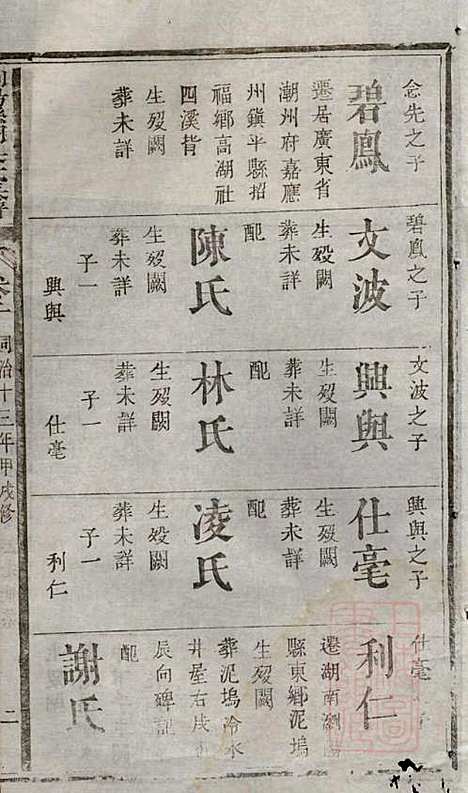 念先之子
碧鳳
遷居廣東省
潮州府嘉應
州鎮平縣招
福鄉高湖社
四溪背
生歿闕
葬未詳
碧鳳之子
文波
生歿闕
葬未詳
配
陳氏
生歿闕
葬未詳
子一
興與
文波之子
興與
生歿闕
葬未詳
配
林氏
生歿闕
葬未詳
子一
仕毫
興與之子
仕毫
生歿闕
葬未詳
配
凌氏
生歿闕
葬未詳
子一
利仁
仕毫 子
利仁
遷湖南瀏陽
縣東鄉泥塢
生歿闕
葬泥塢冷水
井屋右戌
辰向碑記
配
謝氏
卷
同治十三年甲戌修
二